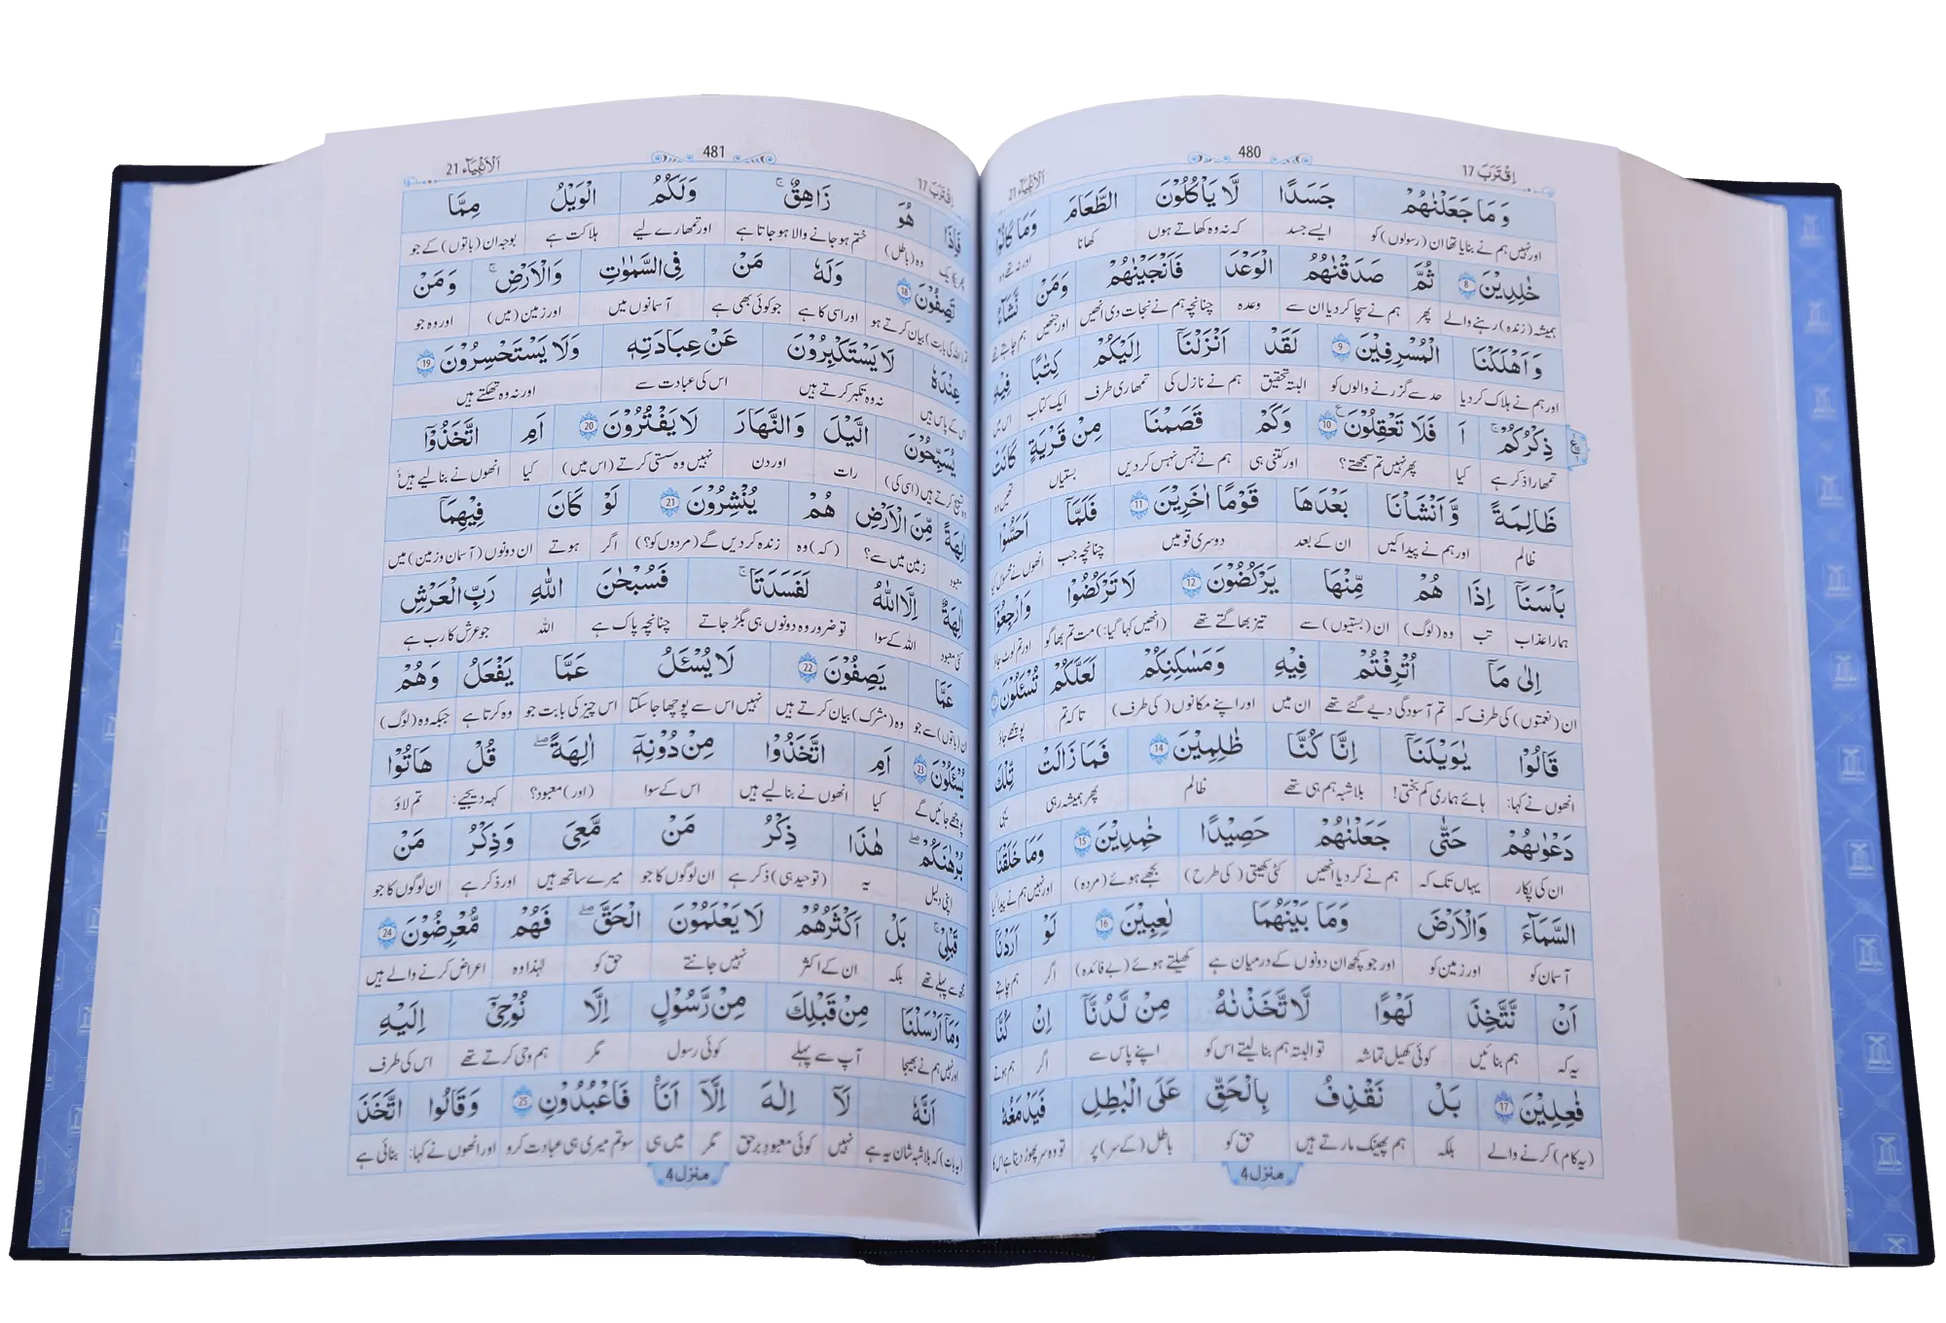 اِقْتَرَبَ 17 480 اَلْاَنْۢبِيَآء 21
وَمَا جَعَلْنٰهُمْ جَسَدًا لَّا يَاْكُلُوْنَ الطَّعَامَ وَمَا كَانُوْا
اور نہیں ہم نے بنایا تھا ان (رسولوں) کو ایسے جسد کہ نہ وہ کھاتے ہوں کھانا اور نہ تھے وہ
خٰلِدِيْنَ 8 ثُمَّ صَدَقْنٰهُمُ الْوَعْدَ فَاَنْجَيْنٰهُمْ وَمَنْ نَّشَآءُ
ہمیشہ (زندہ) رہنے والے پھر ہم نے سچا کر دیا ان سے وعدہ چنانچہ ہم نے نجات دی انھیں اور جنھیں ہم چاہتے تھے
وَاَهْلَكْنَا الْمُسْرِفِيْنَ 9 لَقَدْ اَنْزَلْنَآ اِلَيْكُمْ كِتٰبًا فِيْهِ
اور ہم نے ہلاک کر دیا حد سے گزرنے والوں کو البتہ تحقیق ہم نے نازل کی تمھاری طرف ایک کتاب اس میں
ذِكْرُكُمْ ۚ اَ فَلَا تَعْقِلُوْنَ 10 وَكَمْ قَصَمْنَا مِنْ قَرْيَةٍ كَانَتْ
تمھارا ذکر ہے کیا پھر نہیں تم سمجھتے؟ اور کتنی ہی ہم نے تہس نہس کر دیں بستیاں تھیں وہ
ظَالِمَةً وَّاَنْشَاْنَا بَعْدَهَا قَوْمًا اٰخَرِيْنَ 11 فَلَمَّآ اَحَسُّوْا
ظالم اور ہم نے پیدا کیں ان کے بعد دوسری قومیں چنانچہ جب انھوں نے محسوس کیا
بَاْسَنَآ اِذَا هُمْ مِّنْهَا يَرْكُضُوْنَ 12 لَا تَرْكُضُوْا وَارْجِعُوْٓا
ہمارا عذاب تب وہ (لوگ) ان (بستیوں) سے تیز بھاگتے تھے (انھیں کہا گیا:) مت تم بھاگو اور تم لوٹ جاؤ
اِلٰى مَآ اُتْرِفْتُمْ فِيْهِ وَمَسٰكِنِكُمْ لَعَلَّكُمْ تُسْـَٔلُوْنَ
ان (نعمتوں) کی طرف کہ تم آسودگی دیے گئے تھے ان میں اور اپنے مکانوں (کی طرف) تاکہ تم پوچھے جاؤ
قَالُوْا يٰوَيْلَنَآ اِنَّا كُنَّا ظٰلِمِيْنَ 14 فَمَا زَالَتْ تِّلْكَ
انھوں نے کہا: ہائے ہماری کم بختی! بلاشبہ ہم ہی تھے ظالم پھر ہمیشہ رہی یہی
دَعْوٰىهُمْ حَتّٰى جَعَلْنٰهُمْ حَصِيْدًا خٰمِدِيْنَ 15 وَمَا خَلَقْنَا
ان کی پکار یہاں تک کہ ہم نے کر دیا انھیں کٹی کھیتی (کی طرح) بجھے ہوئے (مردہ) اور نہیں ہم نے پیدا کیا
السَّمَآءَ وَالْاَرْضَ وَمَا بَيْنَهُمَا لٰعِبِيْنَ 16 لَوْ اَرَدْنَآ
آسمان کو اور زمین کو اور جو کچھ ان دونوں کے درمیان ہے کھیلتے ہوئے (بے فائدہ) اگر ہم چاہتے
اَنْ نَّتَّخِذَ لَهْوًا لَّاتَّخَذْنٰهُ مِنْ لَّدُنَّآ اِنْ كُنَّا
یہ کہ ہم بنائیں کوئی کھیل تماشہ تو البتہ ہم بنا لیتے اس کو اپنے پاس سے اگر ہم ہوتے
فٰعِلِيْنَ 17 بَلْ نَقْذِفُ بِالْحَقِّ عَلَى الْبٰطِلِ فَيَدْمَغُهٗ
(یہ کام) کرنے والے بلکہ ہم پھینک مارتے ہیں حق کو باطل (کے سر) پر تو وہ سر پھوڑ دیتا ہے اس کا
منزل 4
اِقْتَرَبَ 17 481 اَلْاَنْۢبِيَآء 21
فَاِذَا هُوَ زَاهِقٌ ۚ وَلَكُمُ الْوَيْلُ مِمَّا
وہ (باطل) ختم ہو جانے والا ہو جاتا ہے اور تمھارے لیے ہلاکت ہے بوجہ ان (باتوں) کے جو
تَصِفُوْنَ 18 وَلَهٗ مَنْ فِى السَّمٰوٰتِ وَالْاَرْضِ ۚ وَمَنْ
بیان کرتے ہو اور اسی کا ہے جو کوئی بھی ہے آسمانوں میں اور زمین (میں) اور وہ جو
عِنْدَهٗ لَا يَسْتَكْبِرُوْنَ عَنْ عِبَادَتِهٖ وَلَا يَسْتَحْسِرُوْنَ 19
اس کے پاس ہیں نہ وہ تکبر کرتے ہیں اس کی عبادت سے اور نہ وہ تھکتے ہیں
يُسَبِّحُوْنَ الَّيْلَ وَالنَّهَارَ لَا يَفْتُرُوْنَ 20 اَمِ اتَّخَذُوْٓا
وہ تسبیح کرتے ہیں (اسی کی) رات اور دن نہیں وہ سستی کرتے (اس میں) کیا انھوں نے بنا لیے ہیں
اٰلِهَةً مِّنَ الْاَرْضِ هُمْ يُنْشِرُوْنَ 21 لَوْ كَانَ فِيْهِمَآ
معبود زمین میں سے؟ (کہ) وہ زندہ کر دیں گے (مردوں کو؟) اگر ہوتے ان دونوں (آسمان و زمین) میں
اٰلِهَةٌ اِلَّا اللّٰهُ لَفَسَدَتَا ۚ فَسُبْحٰنَ اللّٰهِ رَبِّ الْعَرْشِ
کئی معبود اللہ کے سوا تو ضرور وہ دونوں ہی بگڑ جاتے چنانچہ پاک ہے اللہ جو عرش کا رب ہے
عَمَّا يَصِفُوْنَ 22 لَا يُسْـَٔلُ عَمَّا يَفْعَلُ وَهُمْ
ان (باتوں) سے جو وہ (مشرک) بیان کرتے ہیں نہیں اس سے پوچھا جا سکتا اس چیز کی بابت جو وہ کرتا ہے جبکہ وہ (لوگ)
يُسْـَٔلُوْنَ 23 اَمِ اتَّخَذُوْا مِنْ دُوْنِهٖٓ اٰلِهَةً ۖ قُلْ هَاتُوْا
پوچھے جائیں گے کیا انھوں نے بنا لیے ہیں اس کے سوا (اور) معبود؟ کہہ دیجیے: تم لاؤ
بُرْهَانَكُمْ ۖ هٰذَا ذِكْرُ مَنْ مَّعِىَ وَذِكْرُ مَنْ
اپنی دلیل یہ (توحید ہی) ذکر ہے ان لوگوں کا جو میرے ساتھ ہیں اور ذکر ہے ان لوگوں کا جو
قَبْلِىْ ۚ بَلْ اَكْثَرُهُمْ لَا يَعْلَمُوْنَ الْحَقَّ ۖ فَهُمْ مُّعْرِضُوْنَ 24
مجھ سے پہلے تھے بلکہ ان کے اکثر نہیں جانتے حق کو لہٰذا وہ اعراض کرنے والے ہیں
وَمَآ اَرْسَلْنَا مِنْ قَبْلِكَ مِنْ رَّسُوْلٍ اِلَّا نُوْحِىْٓ اِلَيْهِ
اور نہیں ہم نے بھیجا آپ سے پہلے کوئی رسول مگر ہم وحی کرتے تھے اس کی طرف
اَنَّهٗ لَآ اِلٰهَ اِلَّآ اَنَا۠ فَاعْبُدُوْنِ 25 وَقَالُوا اتَّخَذَ
(یہ بات) کہ بلاشبہ شان یہ ہے نہیں کوئی معبود برحق مگر میں ہی سو تم میری ہی عبادت کرو اور انھوں نے کہا: بنائی ہے
منزل 4